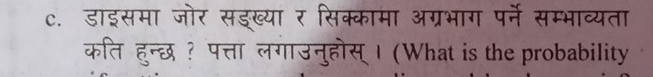 c. डाइसमा जोर सङ्ख्या र सिक्कामा अग्रभाग पर्ने सम्भाव्यता
कति हुन्छ ? पत्ता लगाउनुहोस् । (What is the probability